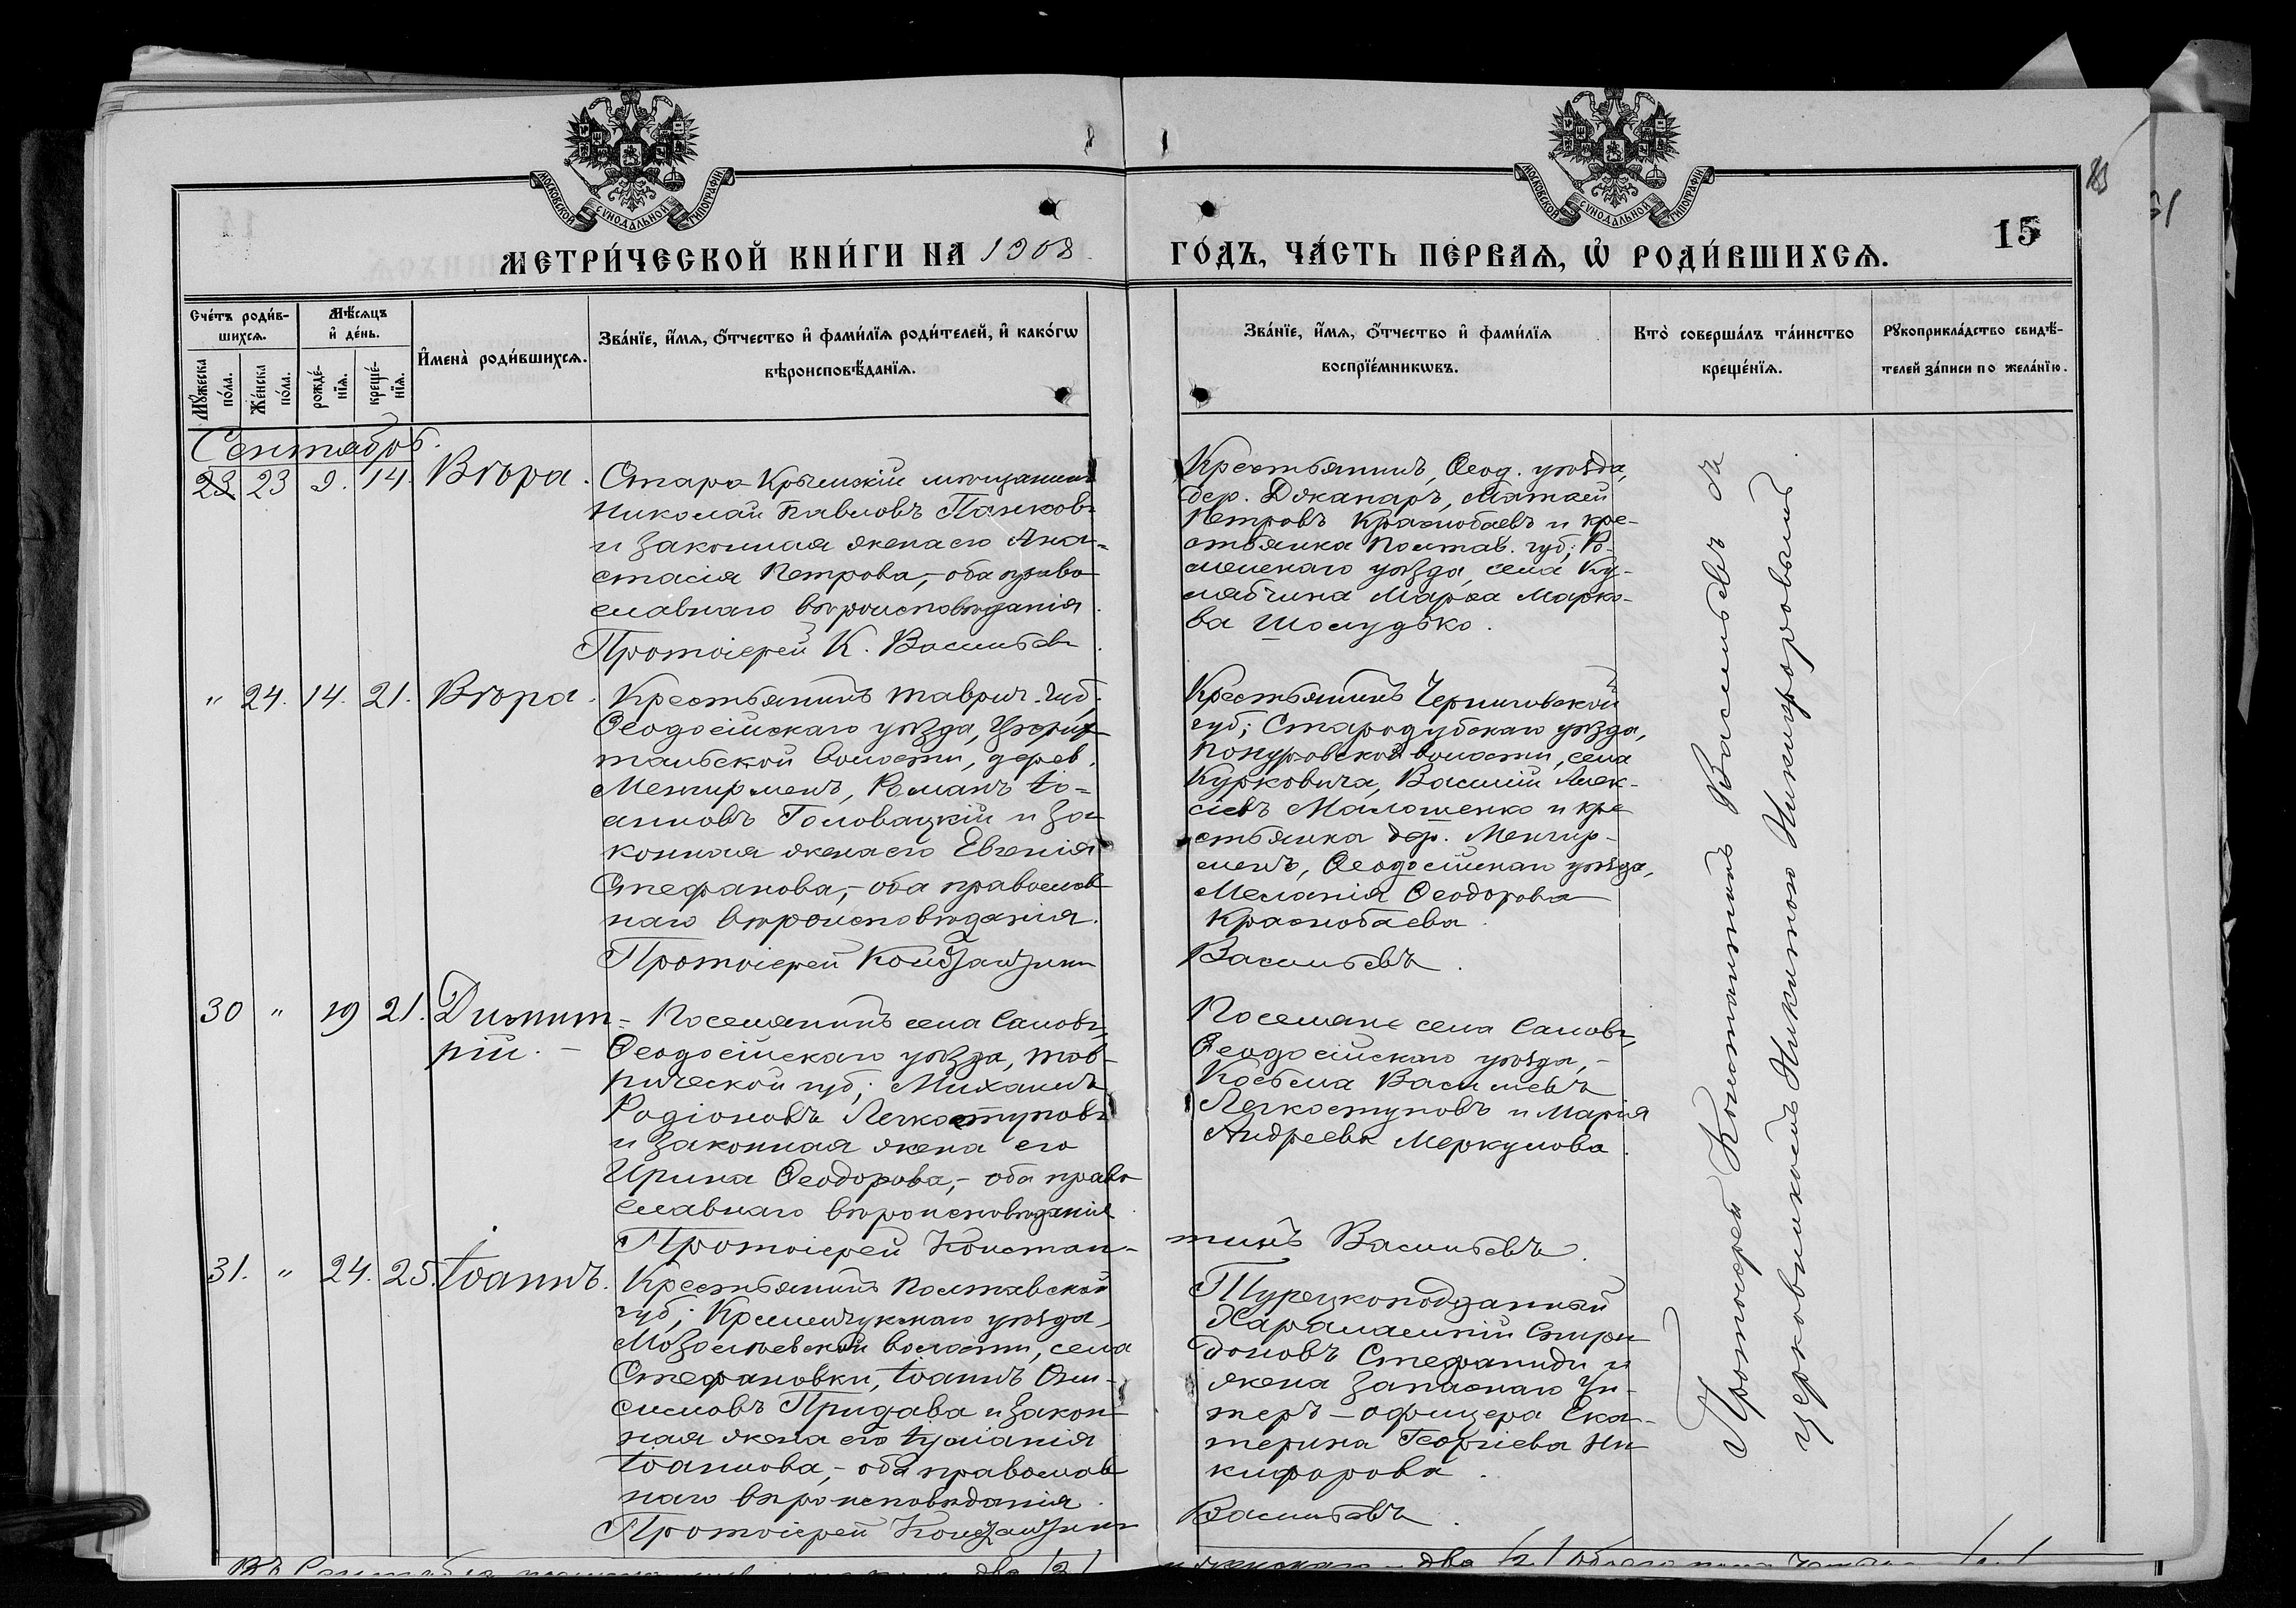 МОСКОВСКОЙ СѴНОДАЛЬНОЙ ТИПОГРАФІИ
МОСКОВСКОЙ СѴНОДАЛЬНОЙ ТИПОГРАФІИ
15
МЕТРИ́ЧЕСКОЙ КНИ́ГИ НА 1908
ГО́ДЪ, ЧА́СТЬ ПЕ́РВАѦ, Ѡ҆ РОДИ́ВШИХСѦ.
Сче́тъ роди́в-
шихсѧ.
Мꙋ́жеска по́ла.
Же́нска по́ла.
Мѣ́сѧцъ
и҆ де́нь.
рожде́-нїѧ.
креще́-нїѧ.
И҆мена̀ роди́вшихсѧ.
Зва́нїе, и҆́мѧ, ѻ҆́тчество и҆ фами́лїѧ роди́телей, и҆ како́гѡ
вѣроисповѣ́данїѧ.
Зва́нїе, и҆́мѧ, ѻ҆́тчество и҆ фами́лїѧ
воспрїе́мникѡвъ.
Кто̀ соверша́лъ та́инство
креще́нїѧ.
Рꙋкоприкла́дство свидѣ́-
телей за́писи по жела́нїю.
Сентябрь.
23. 23 9. 14. Вѣра.
Старо-Крымскій мѣщанинъ
Николай Павловъ Панковъ
и законная жена его Ана-
стасія Петрова, – оба право
славнаго вѣроисповѣданія.
Протоіерей К. Васильевъ
Крестьянинъ, Ѳеод. уѣзда,
дер. Джапаръ, Матѳей
Петровъ Краснобаевъ и кре-
стьянка Полтав. губ; Ро-
менскаго уѣзда, села
Марѳа Марко-
ва Шолудько.
" 24. 14. 21. Вѣра.
Крестьянинъ Таврич. губ.
Ѳеодосійскаго уѣзда, Цюрих-
тальской волости, дерев.
Менгерменъ, Романъ Іо-
анновъ Головацкій и за-
конная жена его Евгенія
Стефанова, – оба православ
наго вѣроисповѣданія.
Протоіерей Константинъ
Крестьянинъ Черниговской
губ; Стародубскаго уѣзда,
Понуровской волости, села
Курковича, Василій Алек-
сіевъ Малошенко и кре
стьянка дер. Менгер-
менъ, Ѳеодосійскаго уѣзда,
Меланія Ѳеодорова
Краснобаева.
Васильевъ.
30 " 19 21. Димит-
рій. –
Поселянинъ села Саловъ,
Ѳеодосійскаго уѣзда, Тав-
рической губ; Михаилъ
Родіоновъ Легкоступовъ
и законная жена его
Ирина Ѳеодорова, – оба право
славнаго вѣроисповѣданія
Протоіерей Констан-
Поселяне села Саловъ,
Ѳеодосійскаго уѣзда, –
Косьма Василіевъ
Легкоступовъ и Марія
Андреева Меркулова.
тинъ Васильевъ.
31. " 24. 25. Іоаннъ.
Крестьянинъ Полтавской
губ; Кременчугскаго уѣзда,
волости, села
Стефановки, Іоаннъ Они-
симовъ Придава и закон-
ная жена его Іуліанія
Іоаннова, – оба православ
наго вѣроисповѣданія.
Протоіерей Константинъ
Турецкоподданный
Харалампій Спири
доновъ Стефаниди и
жена запаснаго Ун-
теръ-офицера Ека-
терина Георгіева Ни-
кифорова.
Васильевъ.
Протоіерей Константинъ Васильевъ съ
церковникомъ Никитою Никифоровымъ